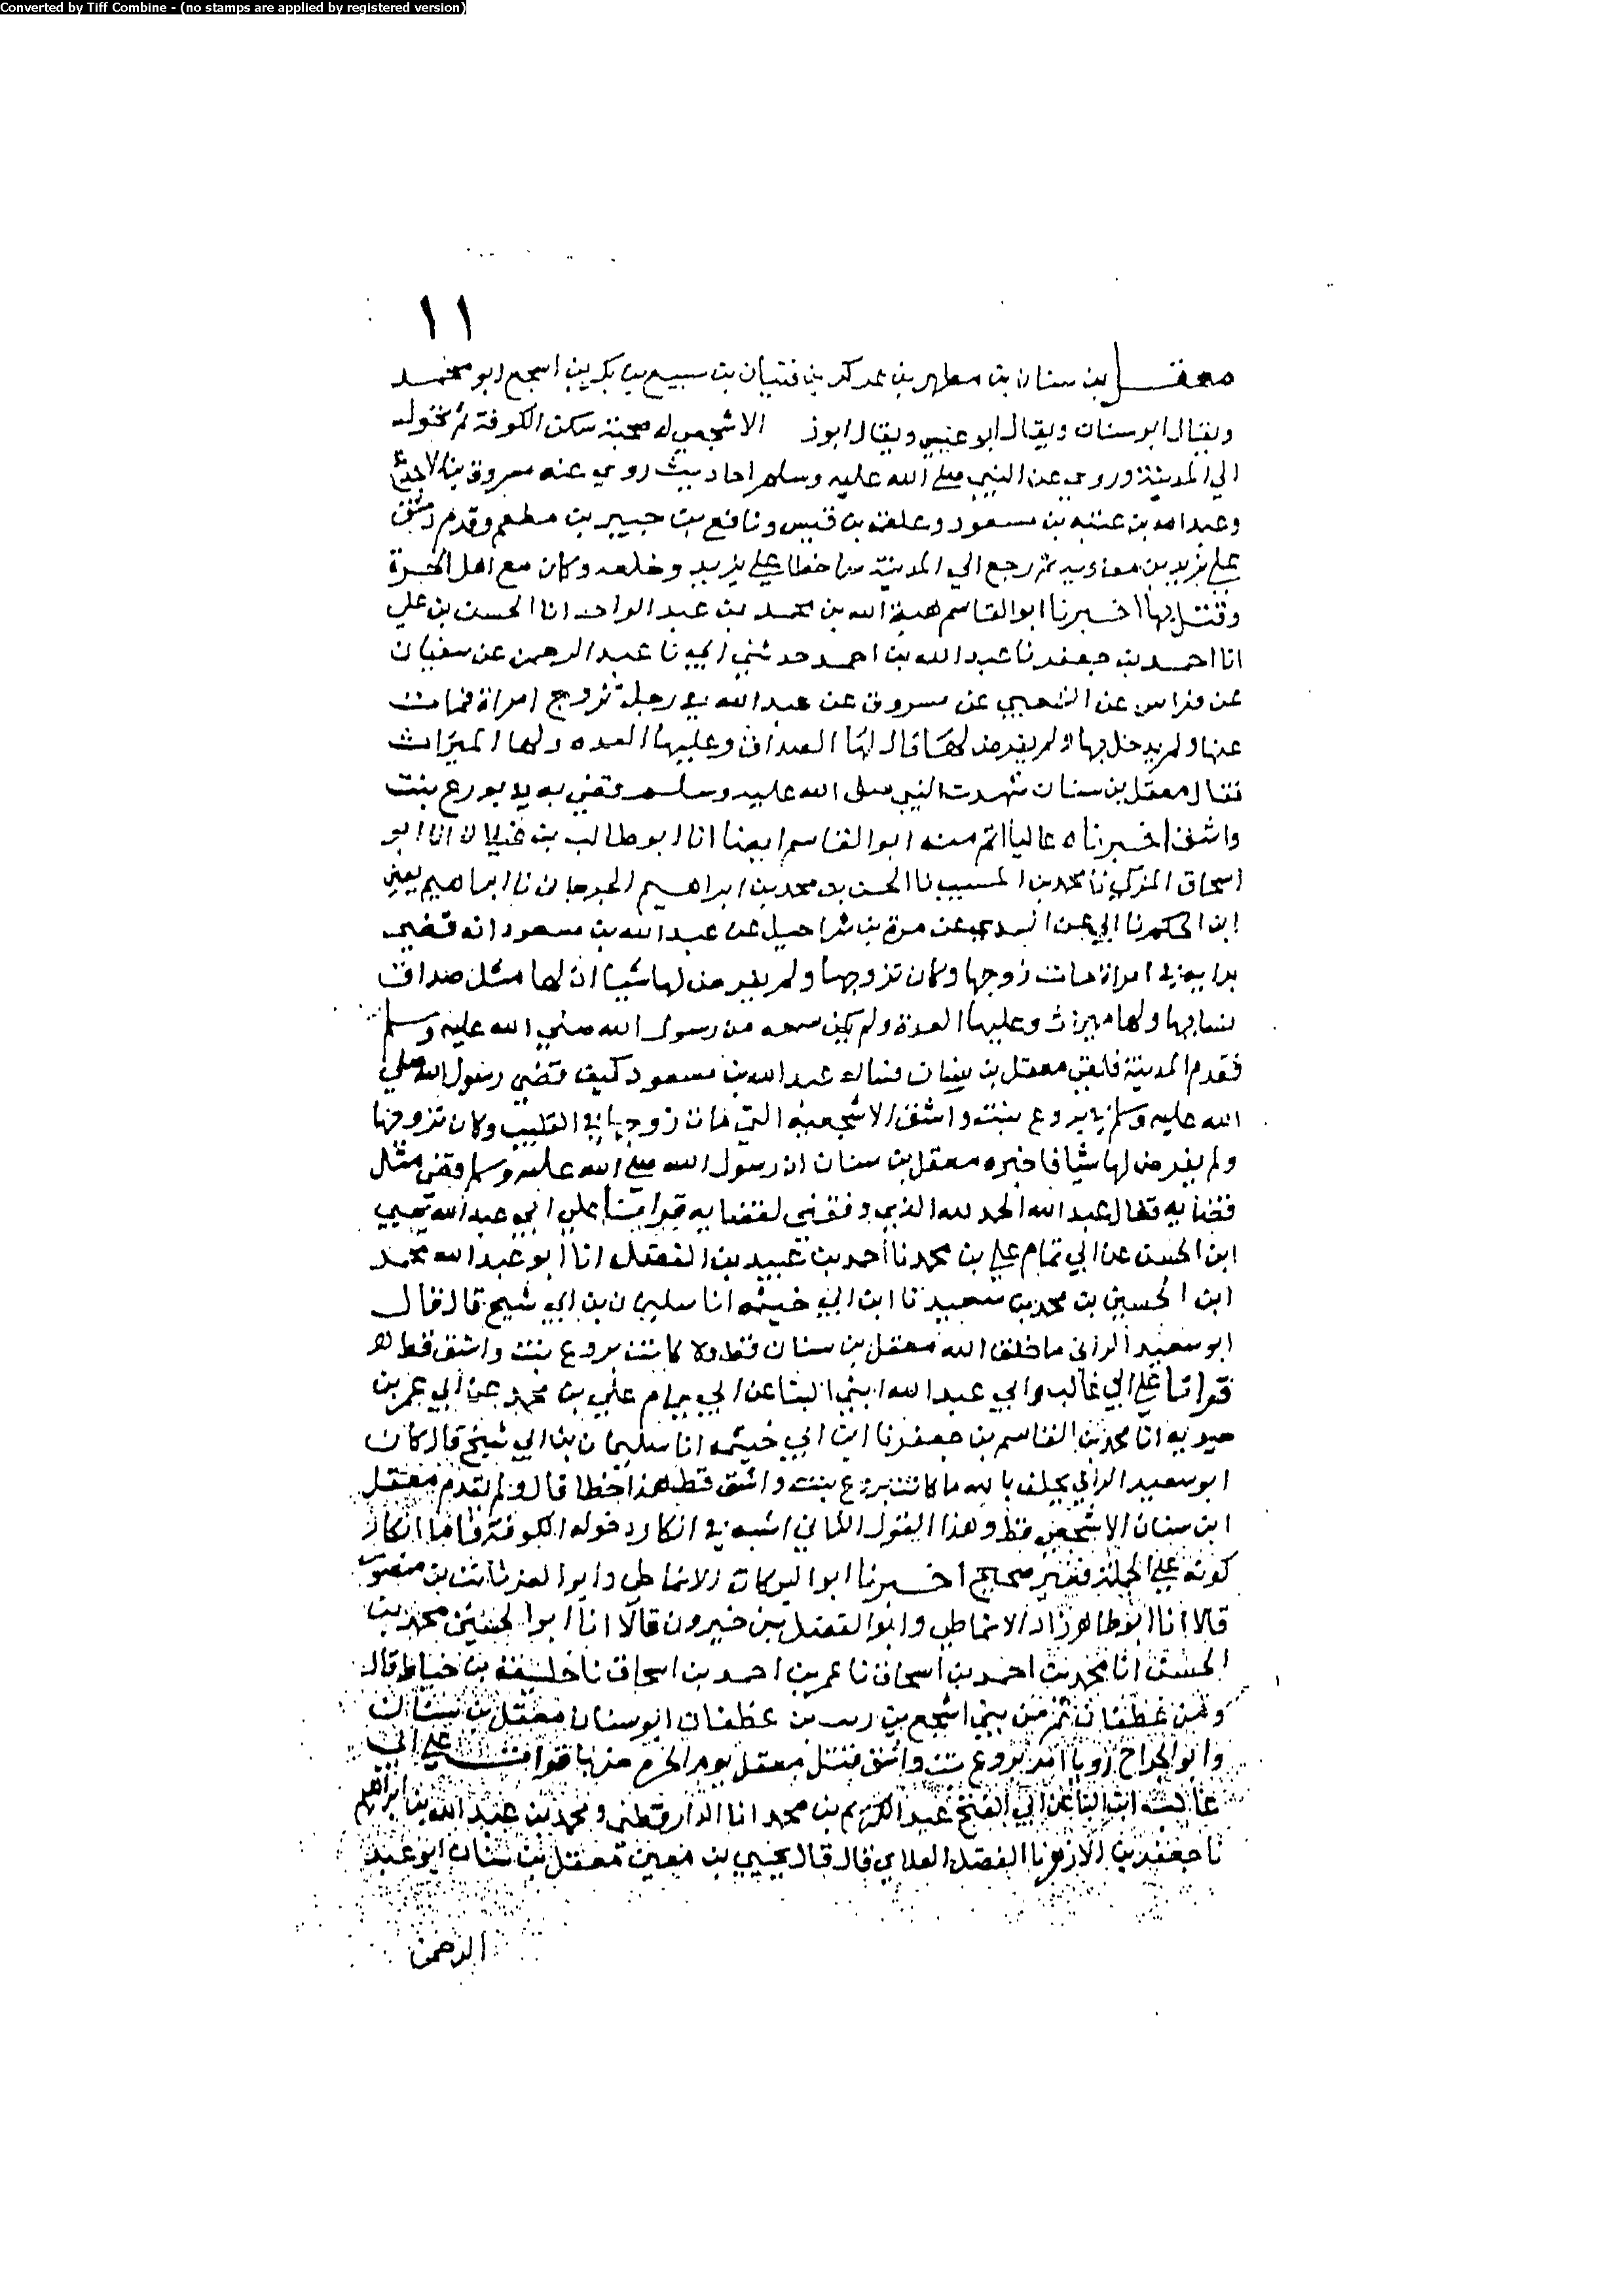 Converted by Tiff Combine - (no stamps are applied by registered version)
١١
معقل بن سنان بن مطهر بن عركر بن فتيان بن سبيع بن بكر بن اسجع ابو محمد
ويقال ابو سنان ويقال ابو عيسي ويقال ابوز الاشجعي له صحبة سكن الكوفة ثم تحول
الي المدينة وروي عن النبي صلي الله عليه وسلم احاديث روي عنه مسروق بن الاجدع
وعبد الله بن عتبه بن مسعود وعلقمه بن قيس ونافع بن جبير بن مطعم وقدم دمشق
علي يزيد بن معاويه ثم رجع الي المدينة ساخطا علي يزيد وخلعه وكان مع اهل الحرة
وقتل بها اخبرنا ابو القاسم هبة الله بن محمد بن عبد الواحد انا الحسن بن علي
انا احمد بن جعفر نا عبد الله بن احمد حدثني ابي نا عبد الرحمن عن سفيان
عن فراس عن الشعبي عن مسروق عن عبد الله في رجل تزوج امراة فمات
عنها ولم يدخل بها ولم يفرض لها قال لها الصداق وعليها العده ولها الميراث
فقال معقل بن سنان شهدت النبي صلى الله عليه وسلم قضي به في بروع بنت
واشق اخبرناه عاليا اتم منه ابو القاسم ايضا انا ابو طالب بن غيلان انا ابو
اسحاق المزكي نا محمد بن المسيب نا الحسن بن محمد بن ابراهيم الجرجان نا ابراهيم يعني
ابن الحكم نا ابي عن السدي عن مرة بن شراحيل عن عبد الله بن مسعود انه قضي
برايه في امراة مات زوجها وكان تزوجها ولم يفرض لها شيا ان لها مثل صداق
نسايها ولها ميراث وعليها العدة ولم يكن سمعه من رسول الله صلي الله عليه وسلم
فقدم المدينة فلقي معقل بن سنان فساله عبد الله بن مسعود كيف قضي رسول الله صلي
الله عليه وسلم في بروع بنت واشق الاشجعيه التي مات زوجها في القليب وكان تزوجها
ولم يفرض لها شيا فاخبره معقل بن سنان ان رسول الله صلي الله عليه وسلم قضي مثل
قضايه فقال عبد الله الحمد لله الذي وفقني لقضايه قراتنا علي ابي عبد الله يحيي
ابن الحسن عن ابي تمام علي بن محمد نا احمد بن عبيد بن الفضل انا ابو عبد الله محمد
ابن الحسين بن محمد بن سعيد نا ابن ابي خيثمه انا سليمان بن ابي شيخ قال قال
ابو سعيد الراني ما خلق الله معقل بن سنان قط ولا كانت بروع بنت واشق قط
قراتا علي ابي غالب وابي عبد الله ابني البنا عن ابي تمام علي بن محمد عن ابي عمر بن
حيويه انا محمد بن القاسم بن جعفر نا ابن ابي خيثمه انا سليمان بن ابي شيخ قال كان
ابو سعيد الراني يحلف بالله ما كانت بروع بنت واشق قط هذا خطا قال ولم يقدم معقل
ابن سنان الاشجعي قط وهذا القول الثاني اشبه في انكار دخوله الكوفة فاما انكار
كونه علي الجملة فغير صحيح اخبرنا ابو البركات الانماطي وابو العز ثابت بن منصور
قالا انا ابو طاهر زاد الانماطي وابو الفضل بن خيرون قالا انا ابو الحسين محمد بن
الحسن انا محمد بن احمد بن اسحاق نا عمر بن احمد بن اسحاق نا خليفة بن خياط قال
ومن غطفان ثم من بني اشجع بن ريث بن غطفان ابو سنان معقل بن سنان
وابو الجراح رويا امر بروع بنت واشق قتل معقل يوم الحرة قرات علي ابي
غالب ابن البنا عن ابي الفتح عبد الكريم بن محمد انا الدارقطني ومحمد بن عبد الله بن ابراهيم
نا جعفر بن الازهر نا الفضل العلاي قال قال يحيي بن معين معقل بن سنان ابو عبد
الرحمن